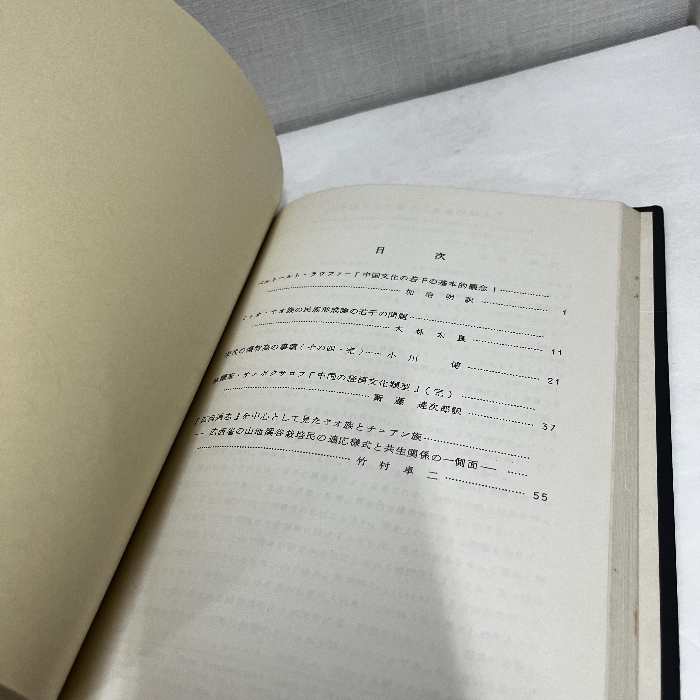 目 次
ベルトルト・ラウファー「中国文化の若干の基本的観念」
加治明訳 1
ミャオ・ヤオ族の民族形成論の若干の問題
大林太良 11
博物誌の事績(その四・完) 小川博 21
「中国の経済文化類型」(完)
斎藤達次郎訳 37
を中心として見たヤオ族とチュアン族
── 広西省の山地渓谷栽培民の適応様式と共生関係の一側面 ──
竹村卓二 55